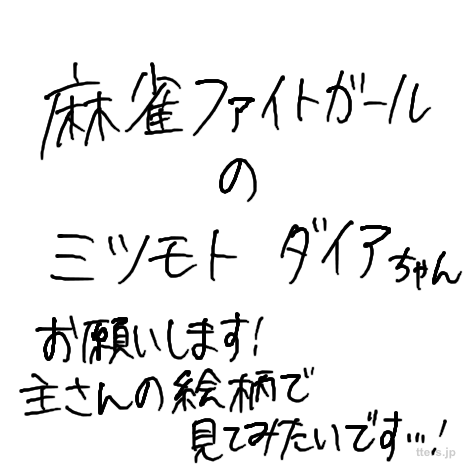 麻雀ファイトガール
の
ミツモト ダイアちゃん
お願いします!
主さんの絵柄で
見てみたいです…!